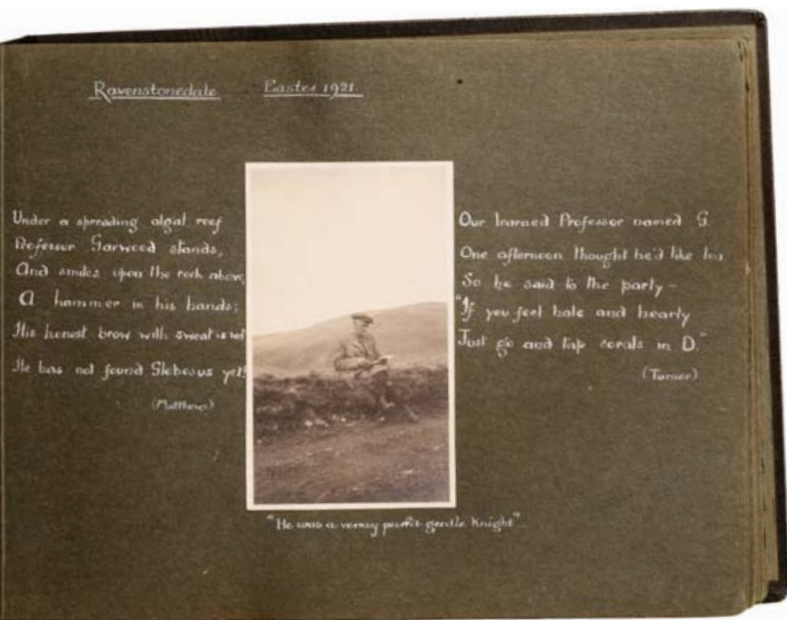 Ravenstonedale Easter 1921
Under a spreading algal reef
Professor Garwood stands,
And smiles upon the rock above,
A hammer in his hands;
His honest brow with sweat is wet
He has not found Glebosus yet!
(Matthews)
Our learned Professor named G.
One afternoon thought he'd like tea
So he said to the party –
"If you feel hale and hearty
Just go and tap corals in D."
(Turner)
"He was a verray gentle Knight".